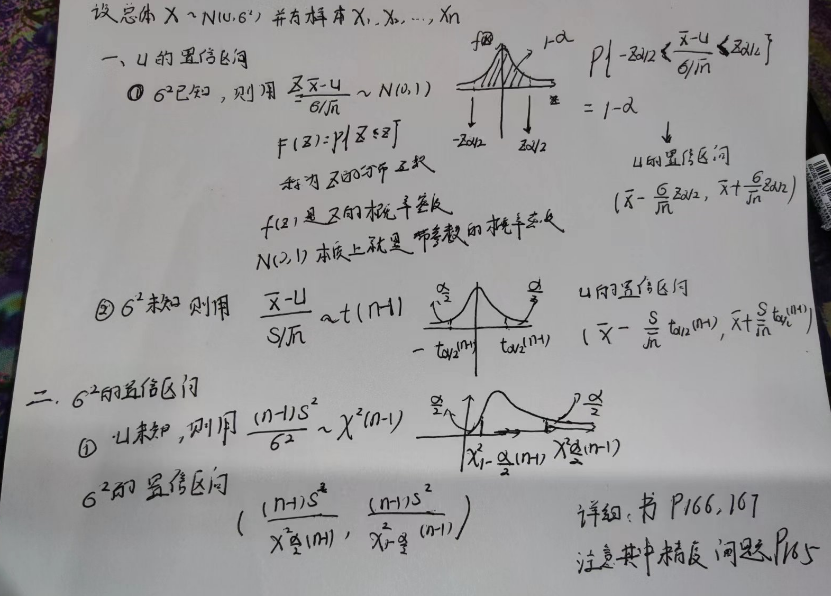 设总体 X ~ N(u, 6²) 并有样本 X₁, X₂, …, Xn
一、u 的置信区间
① 6²已知, 则用 Z = (x̄-u)/(6/√n) ~ N(0,1)
F(z)=P{Z≤z}
称为 Z的分布函数
f(z) 是 Z 的概率密度
N(0,1) 本质上就是 带参数的概率密度
f(x)
1-α
-Zα/2
Zα/2
P{-Zα/2 < (x̄-u)/(6/√n) < Zα/2}
= 1-α
u的置信区间
(x̄ - 6/√n Zα/2, x̄ + 6/√n Zα/2)
② 6²未知 则用 (x̄-u)/(S/√n) ~ t(n-1)
α/2
α/2
- tα/2(n-1)
tα/2(n-1)
u的置信区间
(x̄ - S/√n tα/2(n-1), x̄ + S/√n tα/2(n-1))
二. 6²的置信区间
① u未知, 则用 (n-1)S²/6² ~ X²(n-1)
α/2
α/2
X²1-α/2(n-1)
X²α/2(n-1)
6²的 置信区间
((n-1)S²/X²α/2(n-1), (n-1)S²/X²1-α/2(n-1))
详细: 书 P166, 167
注意其中精度问题 P165